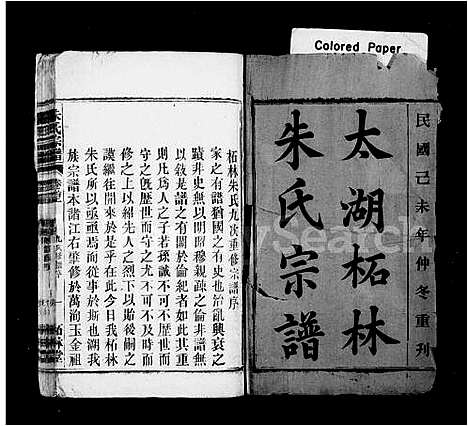 Colored Paper
民國己未年仲冬重刊
太湖柘林
朱氏宗譜
柘林朱氏九次重修宗譜序
家之有譜猶國之有史也治亂興衰之
蹟非史無以明昭穆親疎之倫非譜無
以敘是譜之有關於倫紀者如此其重
則凡爲人之子若孫誠不可不及時而
守之旣歷世而守之尤不可不及時而
修之上以紹先人之烈下以貽後嗣之
謨繼往開來於是乎在此今日我柘林
朱氏所以亟亟焉而從事於斯也溯我
族宗譜本諸江右肇修於萬洵玉金祖